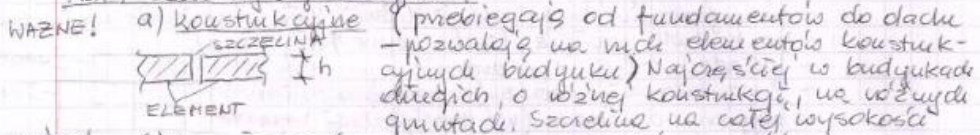 WAŻNE! a) konstrukcyjne (przebiegają od fundamentów do dachu
SZCZELINA
– pozwalają na ruch elementów konstruk-
h
cyjnych budynku) Najczęściej w budynkach
ELEMENT
długich, o różnej konstrukcji, na różnych
gruntach. Szczelina na całej wysokości